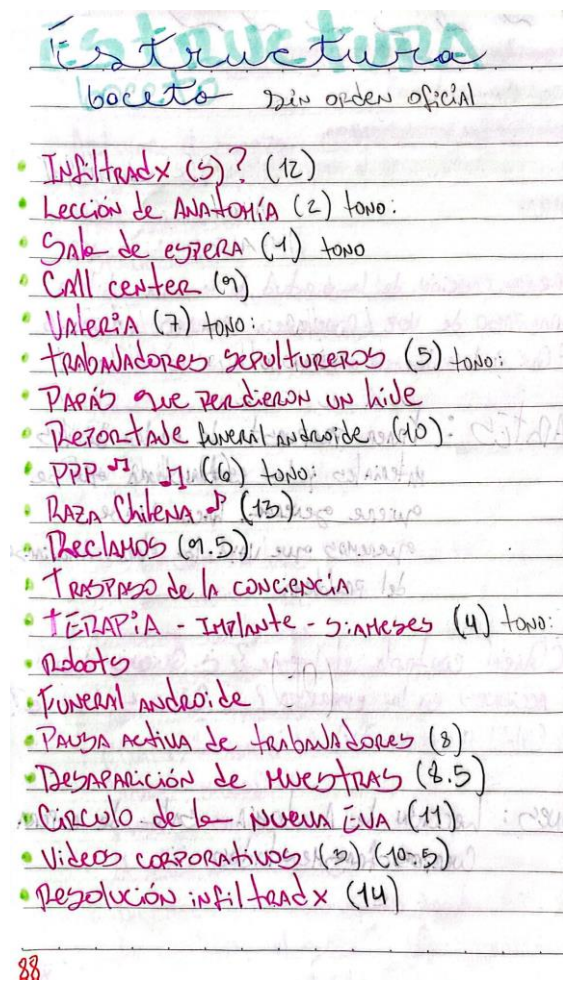 Estructura
boceto sin orden oficial
• Infiltradx (s)? (12)
• Lección de ANATOMÍA (2) tono:
• Sala de espera (1) tono
• Call center (9)
• Valeria (7) tono:
• trabajadores sepultureros (5) tono:
• Papás que perdieron un hije
• Reportaje funeral androide (10)
• PPP ♫ ♫ (6) tono:
• Raza Chilena ♪ (13)
• Reclamos (9.5)
• Traspaso de la conciencia
• TERAPIA - Implante - siameses (4) tono:
• Robots
• Funeral androide
• Pausa activa de trabajadores (8)
• Desaparición de muestras (8.5)
• Circulo de la nueva Eva (11)
• Videos corporativos (3) (10.5)
• Resolución infiltradx (14)
88